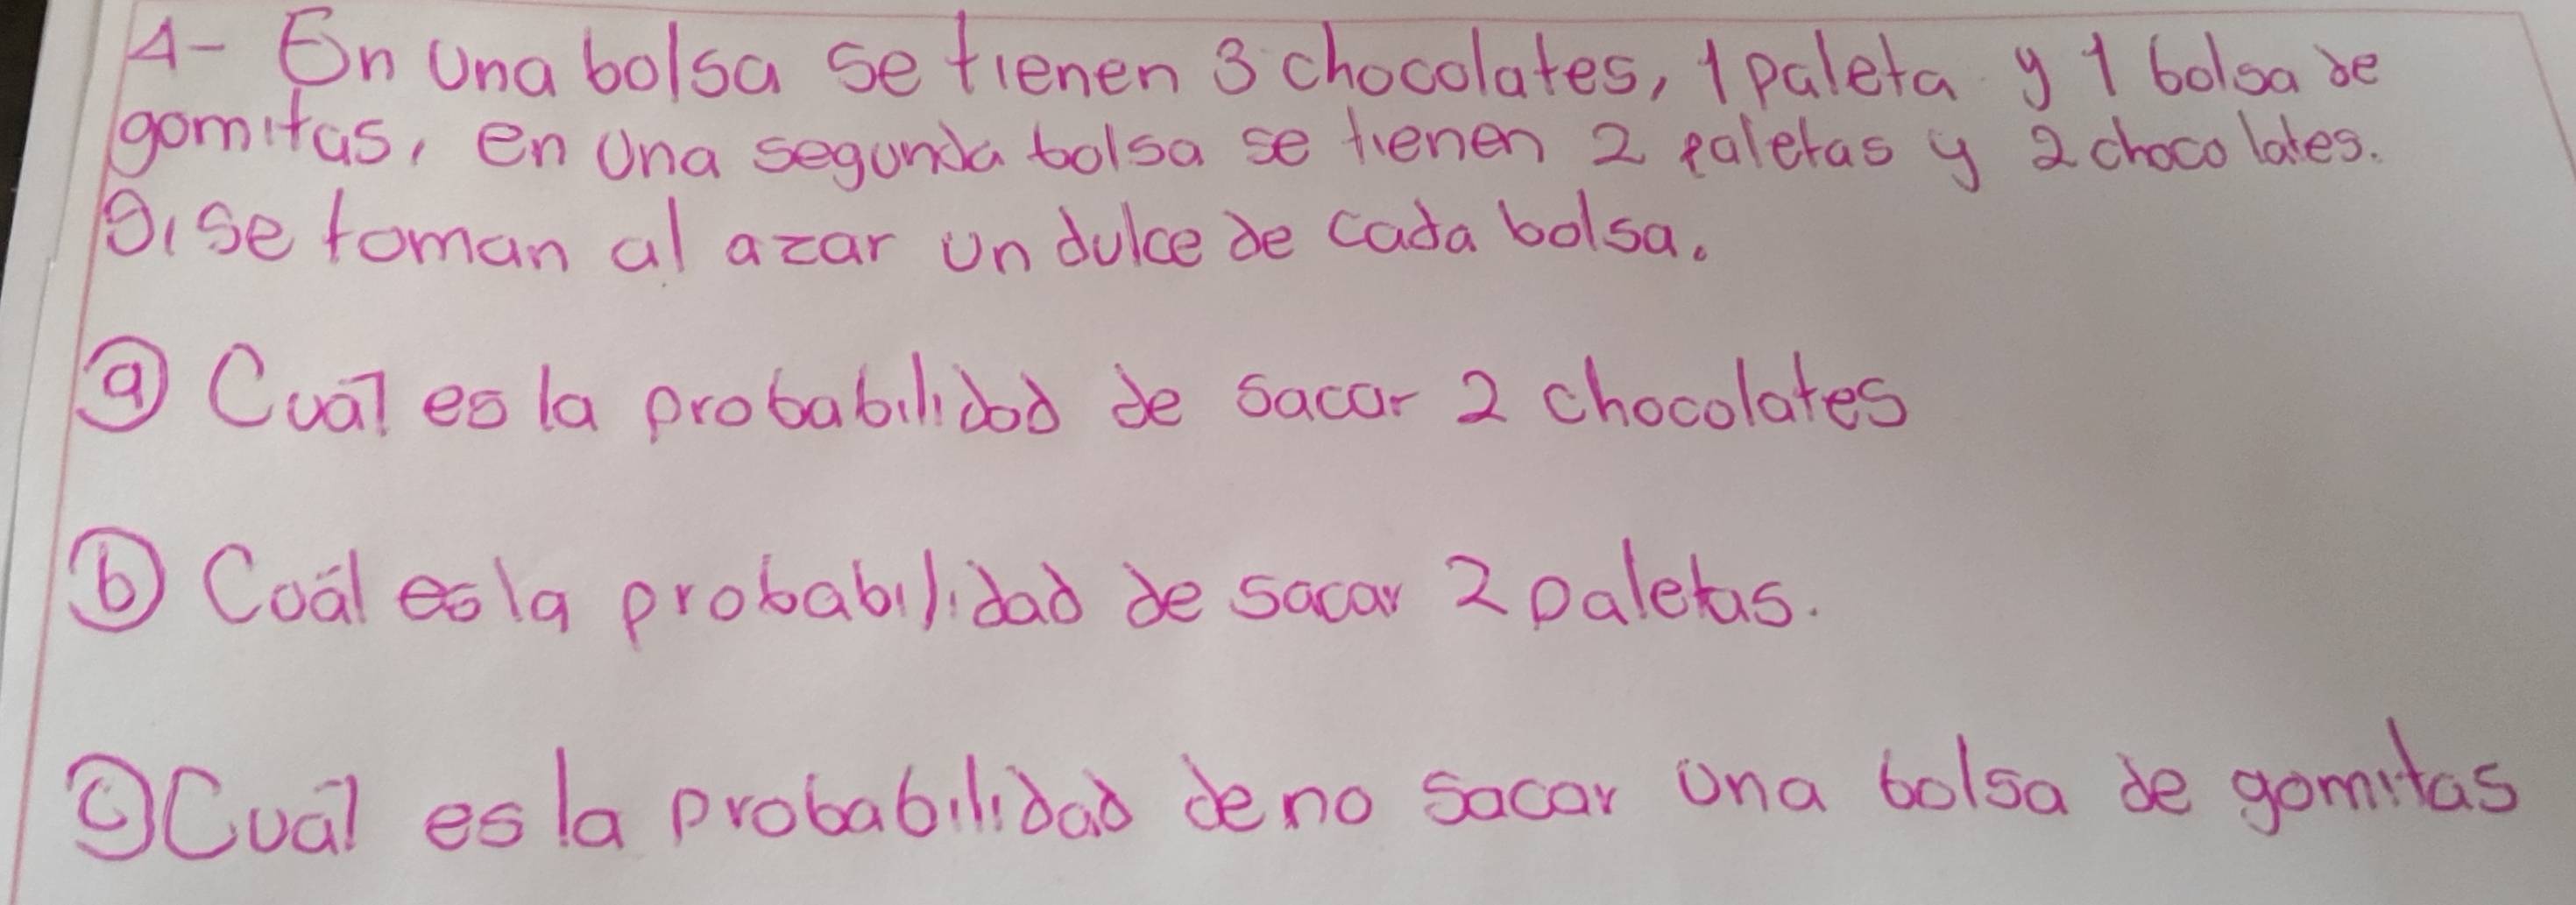 4- En una bolsa se tienen 3 chocolates, 1 paleta y 1 bolsa de
gomitas, en una segunda bolsa se tienen 2 paletas y 2 chocolates.
Si se toman al azar un dulce de cada bolsa.
a) Cuál es la probabilidad de sacar 2 chocolates
b) Cuál es la probabilidad de sacar 2 paletas.
c) Cuál es la probabilidad de no sacar una bolsa de gomitas